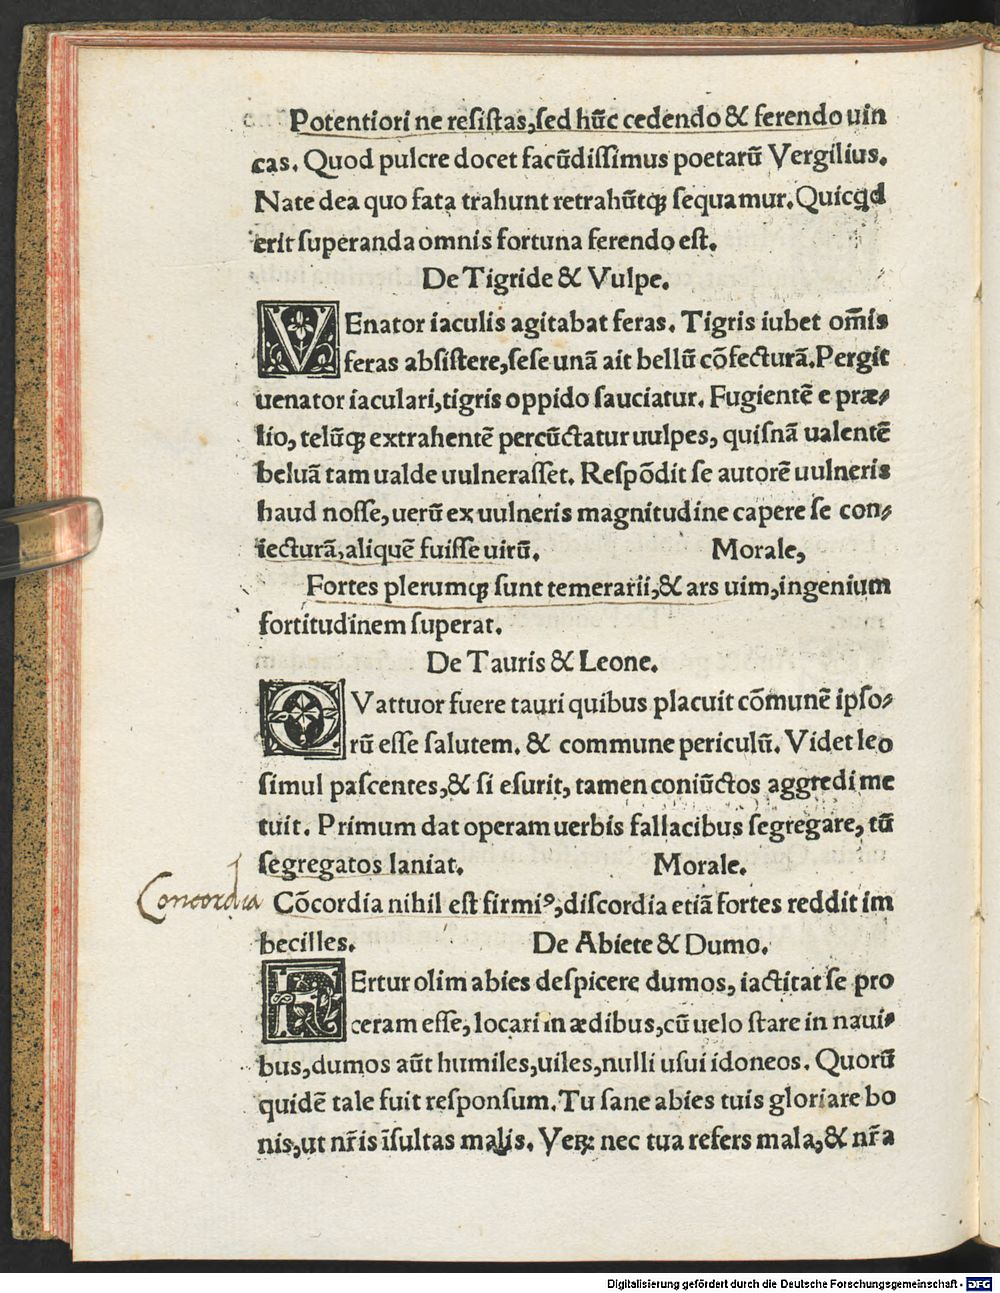 Potentiori ne resistas,sed hũc cedendo & ferendo uin
cas. Quod pulcre docet facũdissimus poetarũ Vergilius.
Nate dea quo fata trahunt retrahũtqꝫ sequamur.Quicqd
erit superanda omnis fortuna ferendo est.
De Tigride & Vulpe.
VEnator iaculis agitabat feras. Tigris iubet om̃is
feras absistere,sese unã ait bellũ cõfecturã.Pergit
uenator iaculari,tigris oppido sauciatur. Fugientẽ e præ⸗
lio, telũqꝫ extrahentẽ percũctatur uulpes, quisnã ualentẽ
beluã tam ualde uulnerasset. Respõdit se autorẽ uulneris
haud nosse, uerũ ex uulneris magnitudine capere se con⸗
iecturã,aliquẽ fuisse uirũ. Morale,
Fortes plerumqꝫ sunt temerarii,& ars uim,ingenium
fortitudinem superat.
De Tauris & Leone.
QVattuor fuere tauri quibus placuit cõmunẽ ipso⸗
rũ esse salutem. & commune periculũ. Videt leo
simul pascentes,& si esurit, tamen coniũctos aggredi me
tuit. Primum dat operam uerbis fallacibus segregare, tũ
segregatos laniat. Morale.
Concordia
Cõcordia nihil est firmiꝰ,discordia etiã fortes reddit im
becilles. De Abiete & Dumo.
FErtur olim abies despicere dumos, iactitat se pro
ceram esse, locari in ædibus,cũ uelo stare in naui⸗
bus,dumos aũt humiles,uiles,nulli usui idoneos. Quorũ
quidẽ tale fuit responsum.Tu sane abies tuis gloriare bo
nis,ut nr̃is ĩsultas malis. Veꝝ nec tua refers mala,& nr̃a
Digitalisierung gefördert durch die Deutsche Forschungsgemeinschaft - DFG